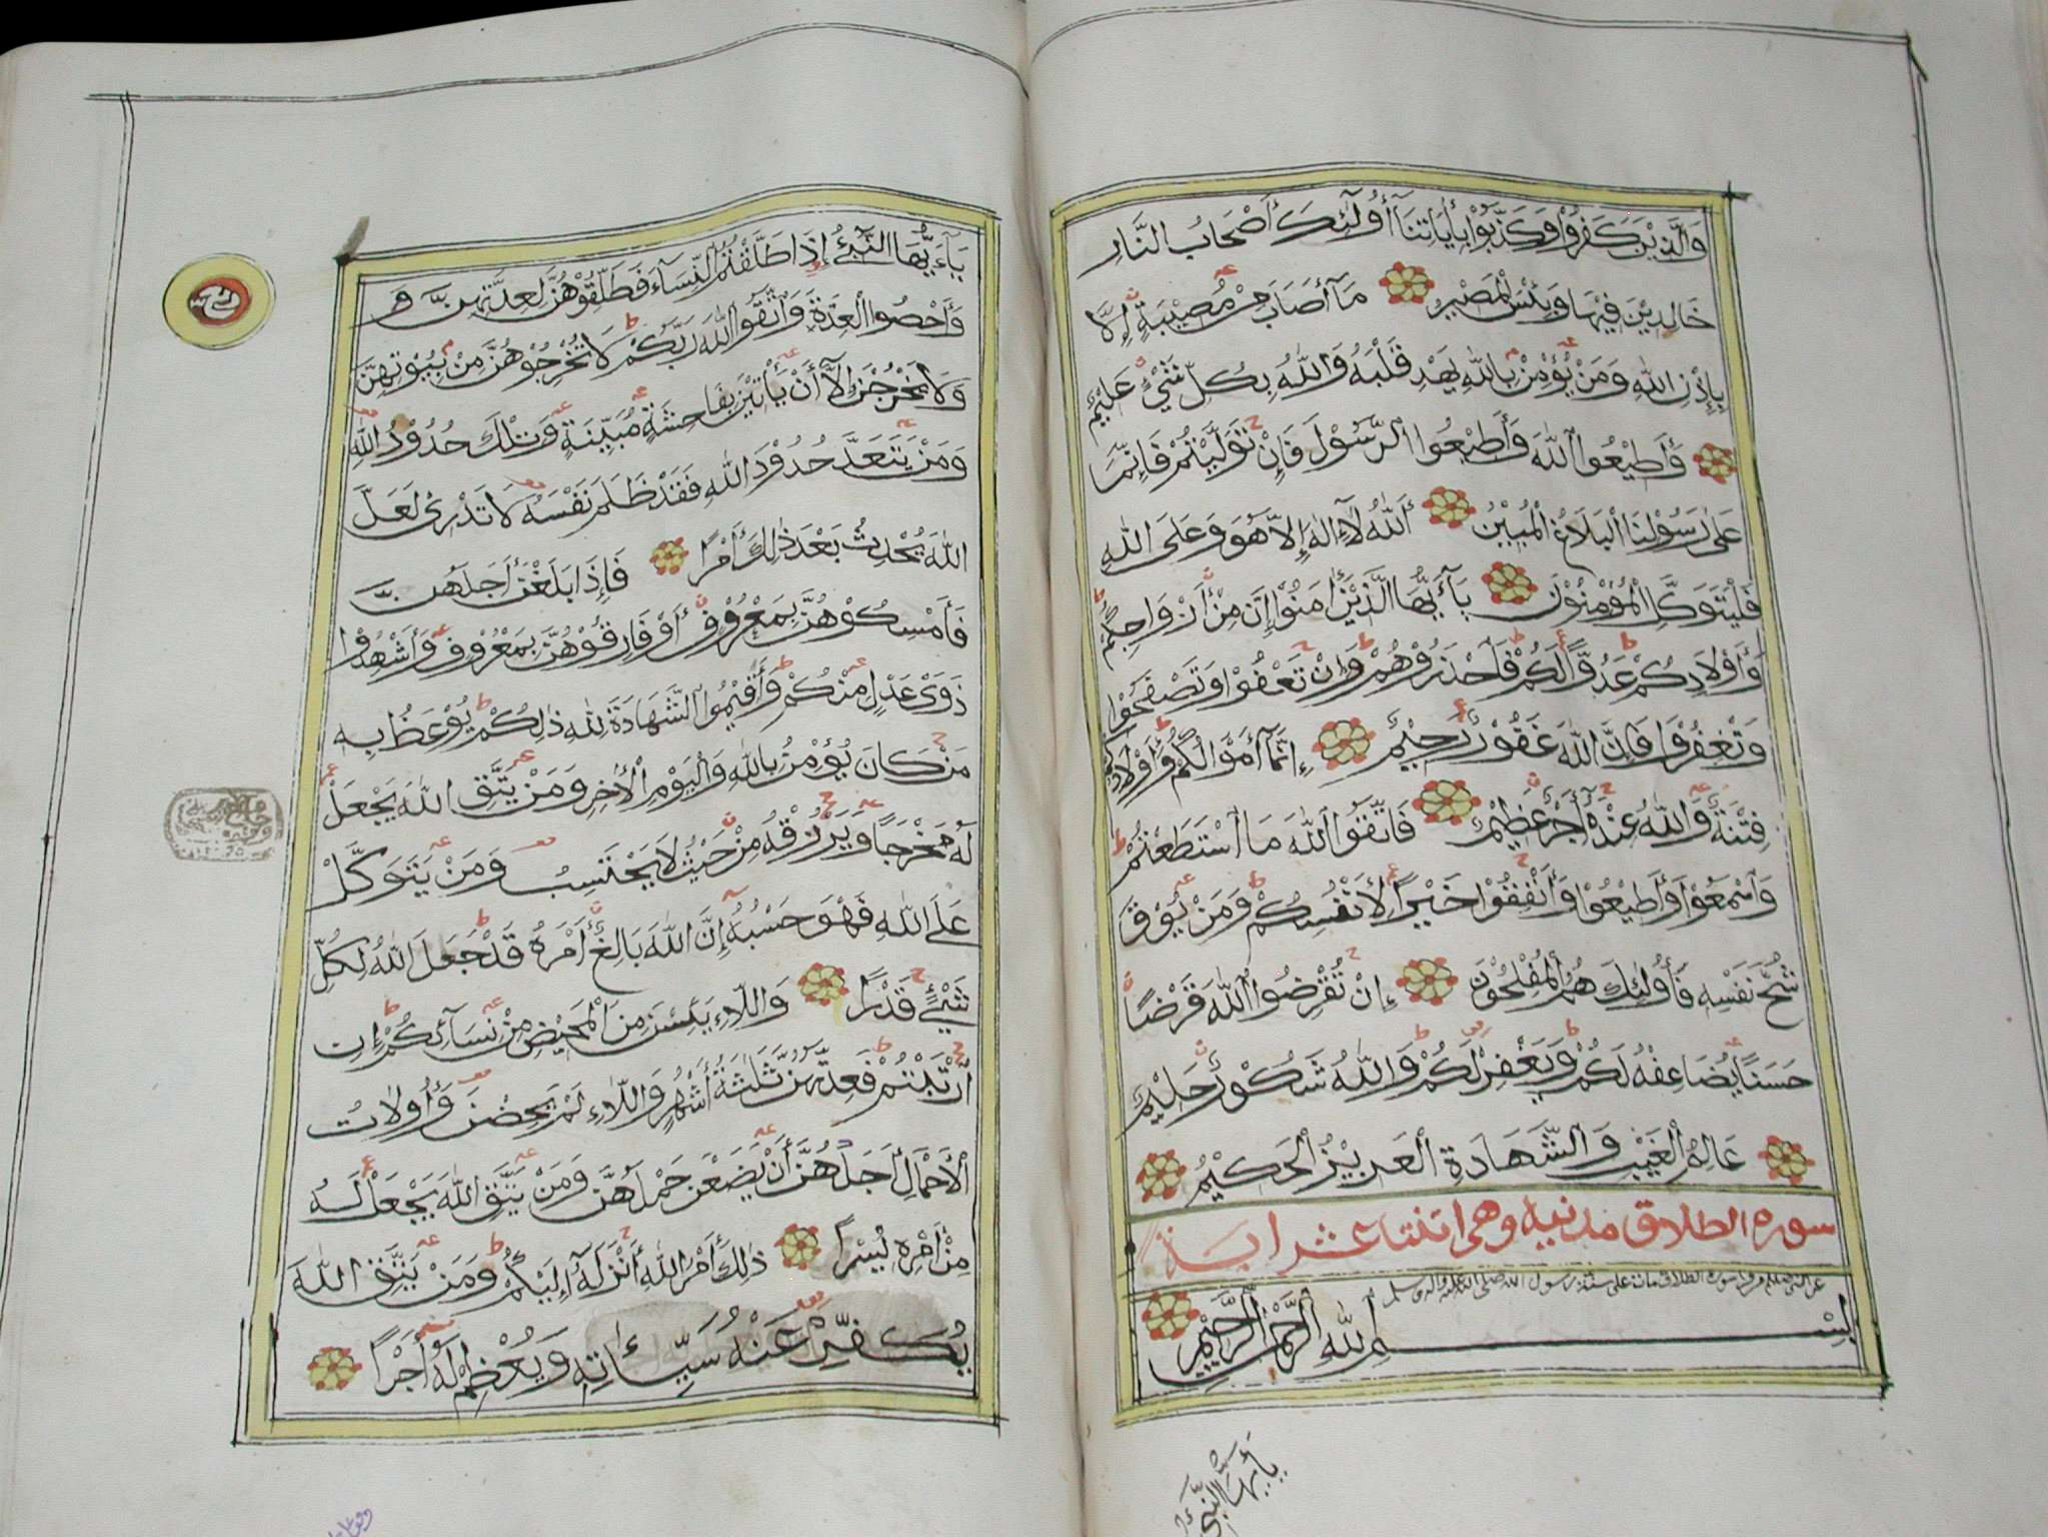 وَالَّذِيْنَ كَفَرُوْا وَكَذَّبُوْا بِأٰيَاتِنَآ أُوْلَٰئِكَ أَصْحَابُ النَّارِ
خَالِدِيْنَ فِيْهَا وَبِئْسَ الْمَصِيْرُ مَآ أَصَابَ مِنْ مُصِيْبَةٍ إِلَّا
بِإِذْنِ اللّٰهِ وَمَنْ يُؤْمِنْ بِاللّٰهِ يَهْدِ قَلْبَهُ وَاللّٰهُ بِكُلِّ شَيْءٍ عَلِيْمٌ
وَأَطِيْعُوا اللّٰهَ وَأَطِيْعُوا الرَّسُوْلَ فَإِنْ تَوَلَّيْتُمْ فَإِنَّمَا
عَلٰى رَسُوْلِنَا الْبَلَاغُ الْمُبِيْنُ أَللّٰهُ لَآ إِلٰهَ إِلَّا هُوَ وَعَلَى اللّٰهِ
فَلْيَتَوَكَّلِ الْمُؤْمِنُوْنَ يَآأَيُّهَا الَّذِيْنَ أٰمَنُوْا إِنَّ مِنْ أَزْوَاجِكُمْ
وَأَوْلَادِكُمْ عَدُوًّا لَكُمْ فَاحْذَرُوْهُمْ وَإِنْ تَعْفُوْا وَتَصْفَحُوْا
وَتَغْفِرُوْا فَإِنَّ اللّٰهَ غَفُوْرٌ رَحِيْمٌ إِنَّمَآ أَمْوَالُكُمْ وَأَوْلَادُكُمْ
فِتْنَةٌ وَاللّٰهُ عِنْدَهُ أَجْرٌ عَظِيْمٌ فَاتَّقُوا اللّٰهَ مَا اسْتَطَعْتُمْ
وَاسْمَعُوْا وَأَطِيْعُوْا وَأَنْفِقُوْا خَيْرًا لِأَنْفُسِكُمْ وَمَنْ يُوْقَ
شُحَّ نَفْسِهِ فَأُولٰئِكَ هُمُ الْمُفْلِحُوْنَ إِنْ تُقْرِضُوا اللّٰهَ قَرْضًا
حَسَنًا يُضَاعِفْهُ لَكُمْ وَيَغْفِرْ لَكُمْ وَاللّٰهُ شَكُوْرٌ حَلِيْمٌ
عَالِمُ الْغَيْبِ وَالشَّهَادَةِ الْعَزِيْزُ الْحَكِيْمُ
سوره الطلاق مدنيه وهى اثنتا عشر اية
سورة الطلاق مات على سنة رسول الله صلى الله عليه واله وسلم
بِسْمِ اللّٰهِ الرَّحْمٰنِ الرَّحِيْمِ
يٰأَيُّهَا النَّبِىُّ
يَآءَيُّهَا النَّبِىُّ إِذَا طَلَّقْتُمُ النِّسَآءَ فَطَلِّقُوْهُنَّ لِعِدَّتِهِنَّ وَ
وَأَحْصُوا الْعِدَّةَ وَاتَّقُوا اللّٰهَ رَبَّكُمْ لَا تُخْرِجُوْهُنَّ مِنْ بُيُوْتِهِنَّ
وَلَا يَخْرُجْنَ إِلَّآ أَنْ يَأْتِيْنَ بِفَاحِشَةٍ مُبَيِّنَةٍ وَتِلْكَ حُدُوْدُ اللّٰهِ
وَمَنْ يَتَعَدَّ حُدُوْدَ اللّٰهِ فَقَدْ ظَلَمَ نَفْسَهُ لَا تَدْرِىْ لَعَلَّ
اللّٰهَ يُحْدِثُ بَعْدَ ذٰلِكَ أَمْرًا فَإِذَا بَلَغْنَ أَجَلَهُنَّ
فَأَمْسِكُوْهُنَّ بِمَعْرُوْفٍ أَوْ فَارِقُوْهُنَّ بِمَعْرُوْفٍ وَأَشْهِدُوْا
ذَوَىْ عَدْلٍ مِنْكُمْ وَأَقِيْمُوا الشَّهَادَةَ لِلّٰهِ ذٰلِكُمْ يُوْعَظُ بِهِ
مَنْ كَانَ يُؤْمِنُ بِاللّٰهِ وَالْيَوْمِ الْأٰخِرِ وَمَنْ يَتَّقِ اللّٰهَ يَجْعَلْ
لَهُ مَخْرَجًا وَيَرْزُقْهُ مِنْ حَيْثُ لَا يَحْتَسِبُ وَمَنْ يَتَوَكَّلْ
عَلَى اللّٰهِ فَهْوَ حَسْبُهُ إِنَّ اللّٰهَ بَالِغٌ أَمْرَهُ قَدْ جَعَلَ اللّٰهُ لِكُلِّ
شَيْءٍ قَدْرًا وَاللَّاءِ يَئِسْنَ مِنَ الْمَحِيْضِ مِنْ نِسَآئِكُمْ إِنِ
ارْتَبْتُمْ فَعِدَّتُهُنَّ ثَلٰثَةُ أَشْهُرٍ وَاللَّاءِ لَمْ يَحِضْنَ وَأُولَاتُ
الْأَحْمَالِ أَجَلُهُنَّ أَنْ يَضَعْنَ حَمْلَهُنَّ وَمَنْ يَتَّقِ اللّٰهَ يَجْعَلْ لَهُ
مِنْ أَمْرِهِ يُسْرًا ذٰلِكَ أَمْرُ اللّٰهِ أَنْزَلَهُ إِلَيْكُمْ وَمَنْ يَتَّقِ اللّٰهَ
يُكَفِّرْ عَنْهُ سَيِّءَاتِهِ وَيُعْظِمْ لَهُ أَجْرًا